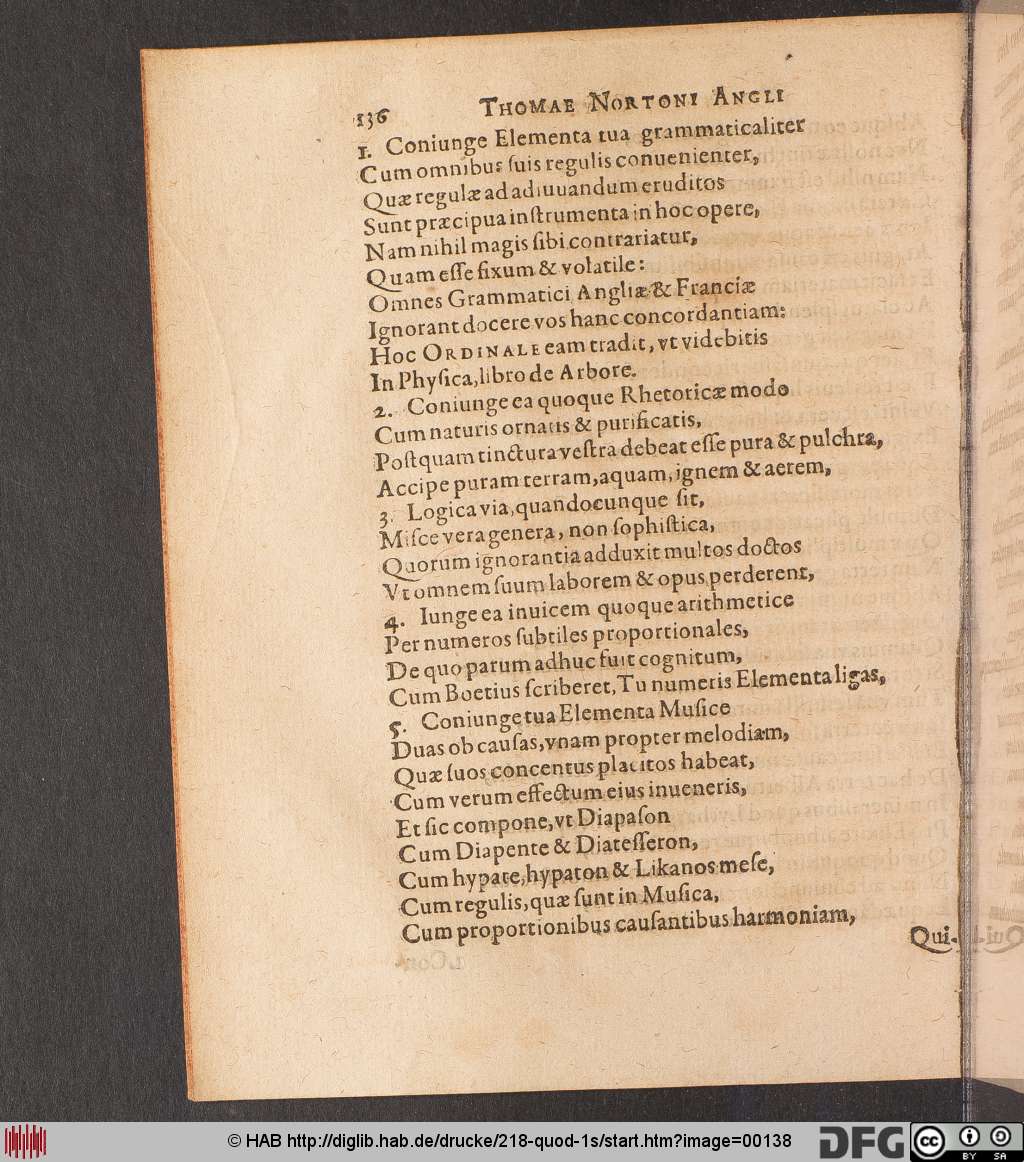 136 THOMAE NORTONI ANGLI
1. Coniunge Elementa tua grammaticaliter
Cum omnibus ſuis regulis conuenienter,
Quæ regulæ ad adiuuandum eruditos
Sunt præcipua inſtrumenta in hoc opere,
Nam nihil magis ſibi contrariatur,
Quam eſſe fixum & volatile:
Omnes Grammatici Angliæ & Franciæ
Ignorant docere vos hanc concordantiam:
Hoc ORDINALE eam tradit, vt videbitis
In Phyſica, libro de Arbore.
2. Coniunge ea quoque Rhetoricæ modo
Cum naturis ornatis & purificatis,
Poſtquam tinctura veſtra debeat eſſe pura & pulchra,
Accipe puram terram, aquam, ignem & aerem,
3. Logica via, quandocunque ſit,
Miſce vera genera, non ſophiſtica,
Quorum ignorantia adduxit multos doctos
Vt omnem ſuum laborem & opus perderent,
4. Iunge ea inuicem quoque arithmetice
Per numeros ſubtiles proportionales,
De quo parum adhuc fuit cognitum,
Cum Boetius ſcriberet, Tu numeris Elementa ligas,
5. Coniunge tua Elementa Muſice
Duas ob cauſas, vnam propter melodiam,
Quæ ſuos concentus placitos habeat,
Cum verum effectum eius inueneris,
Et ſic compone, vt Diapaſon
Cum Diapente & Diateſſeron,
Cum hypate, hypaton & Likanos meſe,
Cum regulis, quæ ſunt in Muſica,
Cum proportionibus cauſantibus harmoniam,
Qui.
© HAB http://diglib.hab.de/drucke/218-quod-1s/start.htm?image=00138 DFG cc BY SA